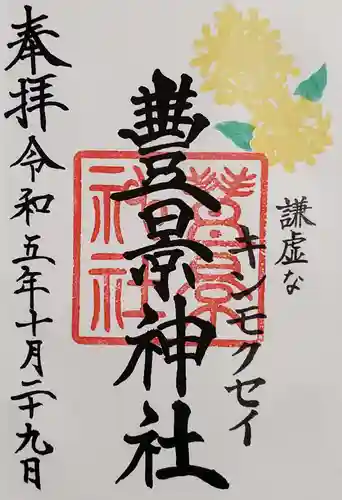 謙虚な
キンモクセイ
豊景神社
奉拝 令和五年十月二十九日